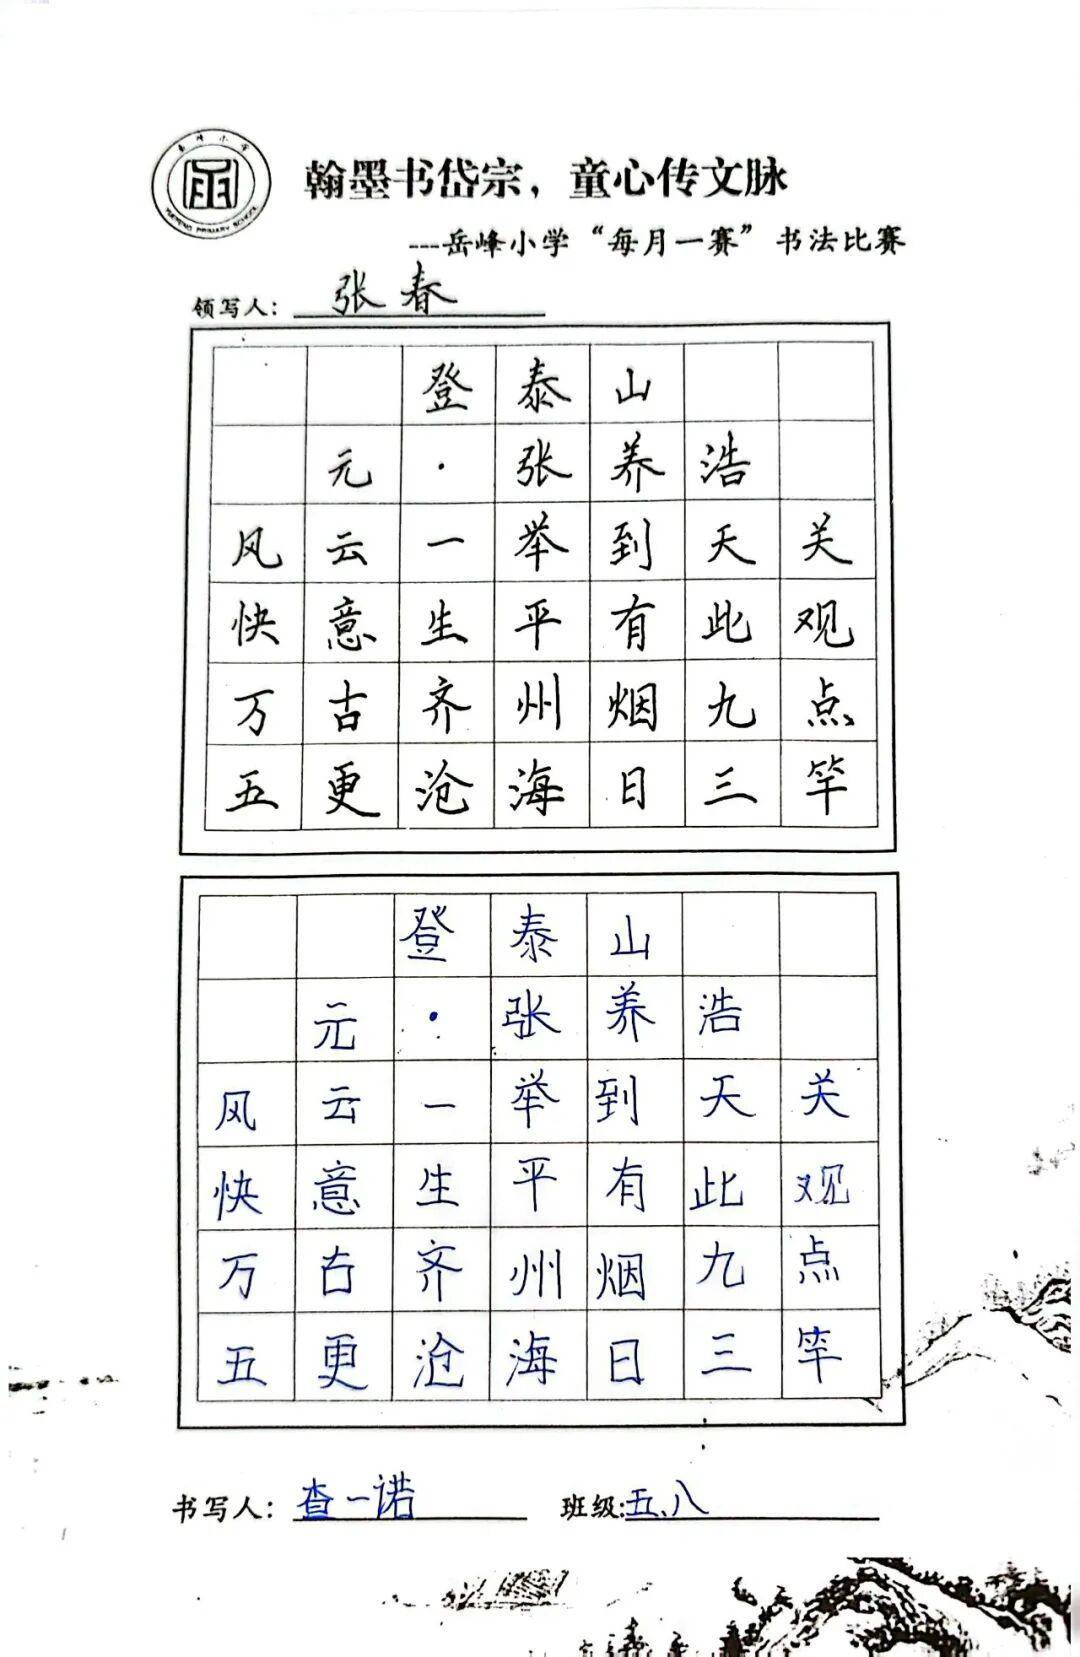 岳峰小学
YUEFENG PRIMARY SCHOOL
翰墨书岱宗，童心传文脉
---岳峰小学“每月一赛”书法比赛
领写人：张春
登泰山
元·张养浩
风云一举到天关
快意生平有此观
万古齐州烟九点
五更沧海日三竿
登泰山
元·张养浩
风云一举到天关
快意生平有此观
万古齐州烟九点
五更沧海日三竿
书写人：查一诺 班级:五.八